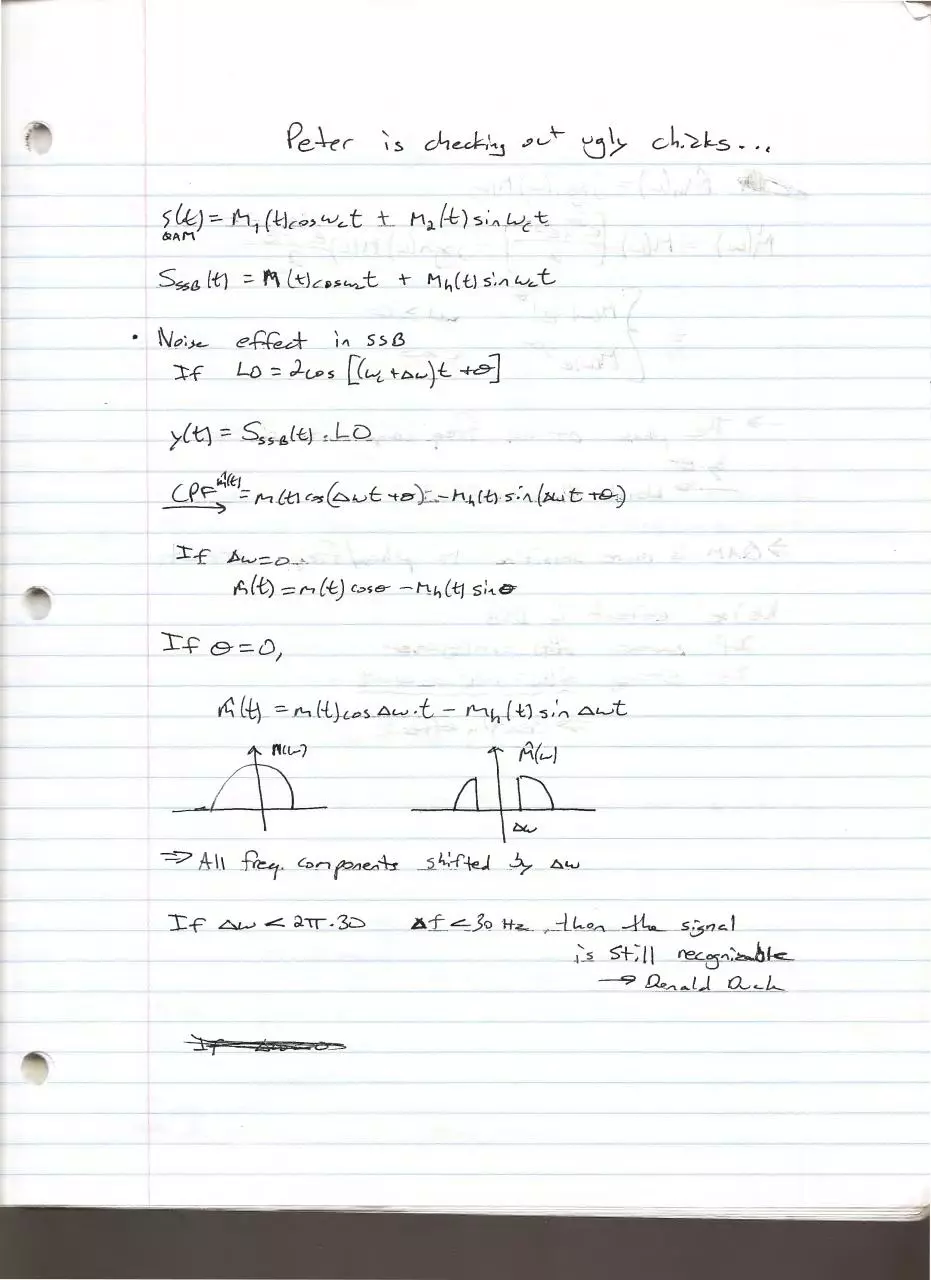 Peter is checking out ugly chicks...
S(t) = M₁(t)cosω_ct ± M₂(t) sinω_ct
QAM
S_SSB(t) = M(t)cosω_ct + M_h(t) sinω_ct
• Noise effect in SSB
If LO = 2cos [(ω_c + Δω)t + θ]
y(t) = S_SSB(t) . LO
LPF m̂(t) = m(t) cos(Δωt + θ) - M_h(t) sin(Δωt + θ)
If Δω = 0
m̂(t) = m(t) cosθ - M_h(t) sinθ
If θ = 0,
m̂(t) = m(t)cos Δω.t - m_h(t) sin Δωt
M(ω) M̂(ω)
Δω
⇒ All freq. components shifted by Δω
If Δω < 2π.30 Δf < 30 Hz, then the signal
is still recognizable
→ Donald Duck
If Δω = 0